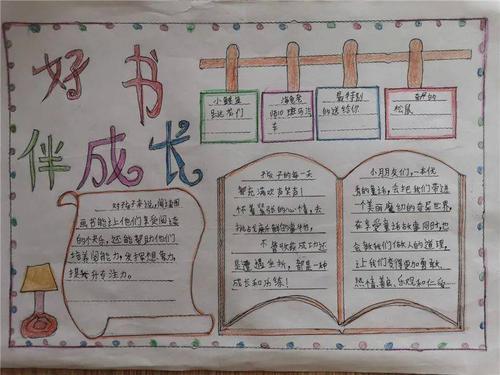 好书
伴成长
小鲤鱼
的
海龟老
师
最特别
的送给你
松鼠
对孩子来说,阅读图
画书能让他们享受阅读
的快乐,还能帮助他们
培养阅能力,发挥想象力,
提升专注力。
孩子的每一天
都充满欢声笑语!
怀着紧张的心情,去
挑战
不管收获成功还
是遭遇坐折,都是一种
成长和历练!
小朋友们,一本优
秀的童话,会把我们带进
一个美丽魔幻的奇异世界,
在享受童话故事同时,也
会教我们做人的道理,
让我们变得更加勇敢
热情、善良、乐观和仁爱